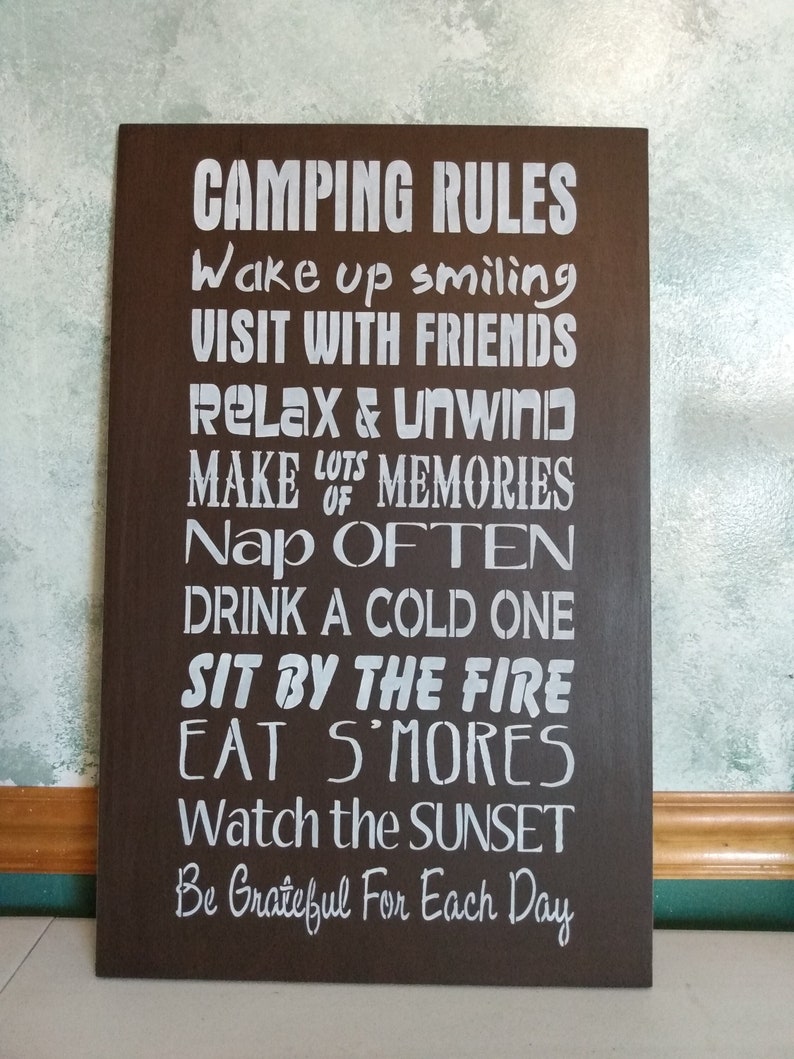 CAMPING RULES
Wake up smiling
VISIT WITH FRIENDS
RELAX & UNWIND
MAKE LOTS OF MEMORIES
Nap OFTEN
DRINK A COLD ONE
SIT BY THE FIRE
EAT S'MORES
Watch the SUNSET
Be Grateful For Each Day